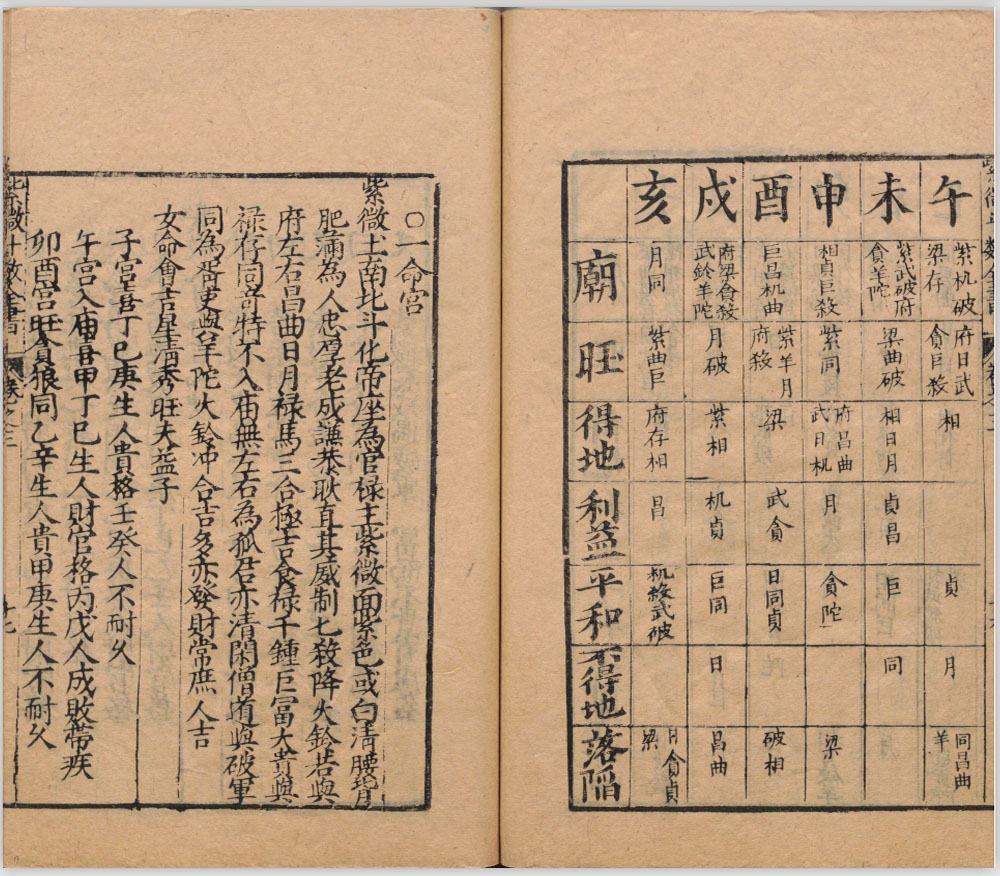 午
紫机破
梁存
府日武
貪巨殺
相
貞
月
同昌曲
羊
未
紫武破府
貪羊陀
梁曲破
相日月
貞昌
巨
同
申
相貞巨殺
紫同
府昌曲
武日机
月
貪陀
梁
酉
巨昌机曲
紫羊月
府殺
梁
武貪
日同貞
破相
戌
府梁貪殺
武鈴羊陀
月破
紫相
机貞
巨同
日
昌曲
亥
月同
紫曲巨
府存相
昌
机殺武破
日貪貞
梁
廟
旺
得地
利益
平和
不得地
落陷
○一命宮
紫微土南北斗化帝座為官禄主紫微面紫色或白清腰背
肥滿為人忠厚老成謙恭耿直其威制七殺降火鈴若與
府左右昌曲日月禄馬三合極吉食禄千鍾巨富大貴與
禄存同竒特不入庙無左右為孤君亦清閑僧道與破軍
同為胥吏與羊陀火鈴冲合吉多亦發財常庶人吉
女命會吉星清秀旺夫益子
子宮吉丁巳庚生人貴格壬癸人不耐久
午宮入庙吉甲丁巳生人財官格丙戊人成敗帶疾
卯酉宮旺貪狼同乙辛生人貴甲庚生人不耐久